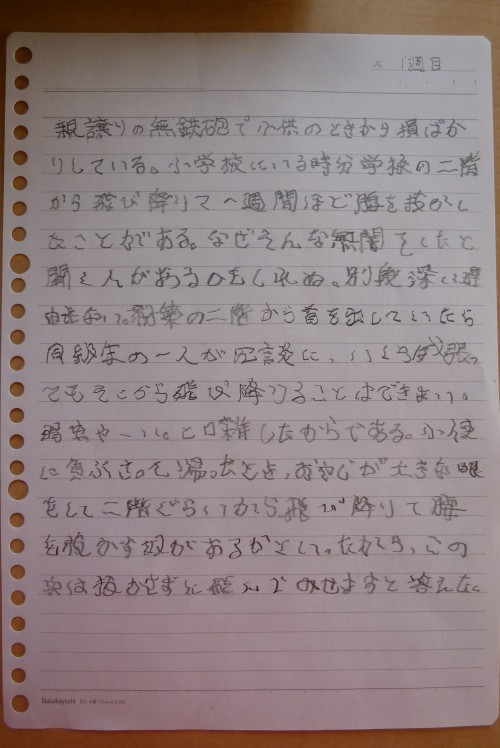 1週目
親譲りの無鉄砲で小供のときから損ばか
りしている。小学校にいる時分学校の二階
から飛び降りて一週間ほど腰を抜かし
たことがある。なぜそんな無闇をしたと
聞く人があるかもしれぬ。別段深い理
由でもない。新築の二階から首を出していたら
同級生の一人が冗談に、いくら威張っ
てもそこから飛び降りることはできまい。
弱虫やーい。と囃したからである。小使
に負ぶさって帰ったとき、おやじが大きな眼
をして二階ぐらいから飛び降りて腰
を抜かす奴があるかといったから、この
次は抜かさずに飛んで見せますと答えた。
Nakabayashi